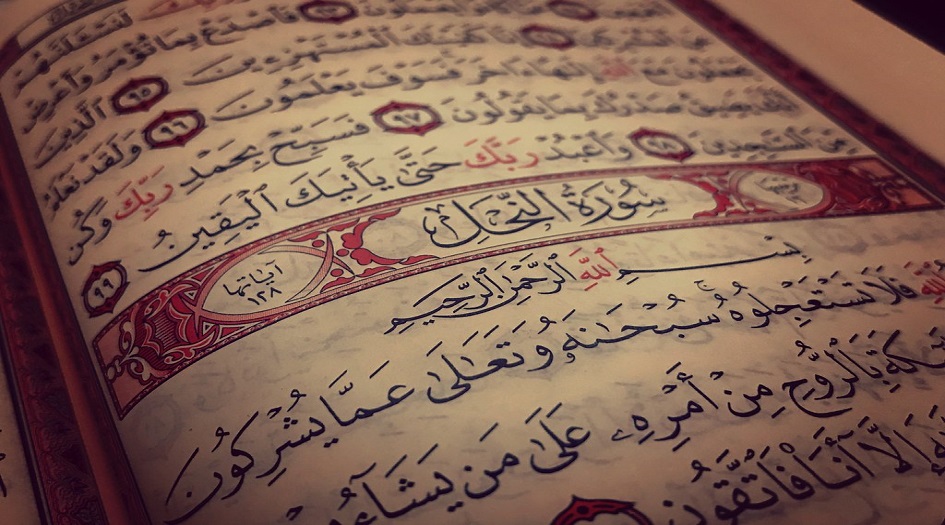 لَنَسْـَٔلَنَّهُمْ
فَٱصْدَعْ بِمَا تُؤْمَرُ وَأَعْرِضْ
عَنِ ٱلْمُشْرِكِينَ إِنَّا كَفَيْنَٰكَ ٱلْمُسْتَهْزِءِينَ ٩٥ ٱلَّذِينَ
يَجْعَلُونَ مَعَ ٱللَّهِ إِلَٰهًا ءَاخَرَ فَسَوْفَ يَعْلَمُونَ ٩٦ وَلَقَدْ نَعْلَمُ
أَنَّكَ يَضِيقُ صَدْرُكَ بِمَا يَقُولُونَ ٩٧ فَسَبِّحْ بِحَمْدِ رَبِّكَ وَكُن
مِّنَ ٱلسَّٰجِدِينَ ٩٨ وَٱعْبُدْ رَبَّكَ حَتَّىٰ يَأْتِيَكَ ٱلْيَقِينُ ٩٩
سُورَةُ النَّحْلِ آيَاتُهَا ١٢٨
بِسْمِ ٱللَّهِ ٱلرَّحْمَٰنِ ٱلرَّحِيمِ
ٱللَّهِ فَلَا تَسْتَعْجِلُوهُ سُبْحَٰنَهُۥ وَتَعَٰلَىٰ عَمَّا يُشْرِكُونَ
بِٱلرُّوحِ مِنْ أَمْرِهِۦ عَلَىٰ مَن يَشَآءُ
إِلَّآ أَنَا۠ فَٱتَّقُونِ